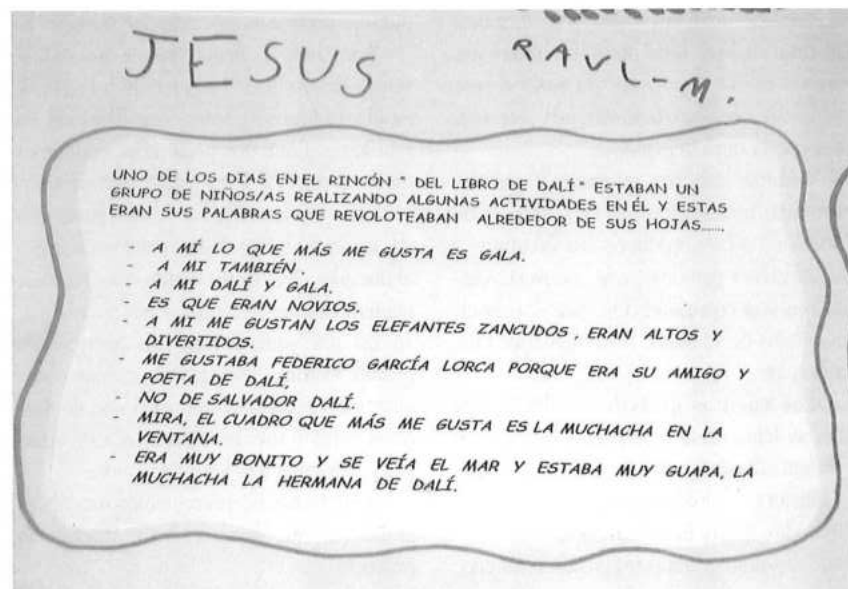 JESUS
RAUL-M.
UNO DE LOS DIAS EN EL RINCÓN " DEL LIBRO DE DALÍ" ESTABAN UN
GRUPO DE NIÑOS/AS REALIZANDO ALGUNAS ACTIVIDADES EN ÉL Y ESTAS
ERAN SUS PALABRAS QUE REVOLOTEABAN ALREDEDOR DE SUS HOJAS......
- A MÍ LO QUE MÁS ME GUSTA ES GALA.
A MI TAMBIÉN.
- A MI DALÍ Y GALA.
- ES QUE ERAN NOVIOS.
- A MI ME GUSTAN LOS ELEFANTES ZANCUDOS, ERAN ALTOS Y
DIVERTIDOS.
- ME GUSTABA FEDERICO GARCÍA LORCA PORQUE ERA SU AMIGO Y
POETA DE DALÍ,
- NO DE SALVADOR DALÍ.
- MIRA, EL CUADRO QUE MÁS ME GUSTA ES LA MUCHACHA EN LA
VENTANA.
- ERA MUY BONITO Y SE VEÍA EL MAR Y ESTABA MUY GUAPA, LA
MUCHACHA LA HERMANA DE DALÍ.